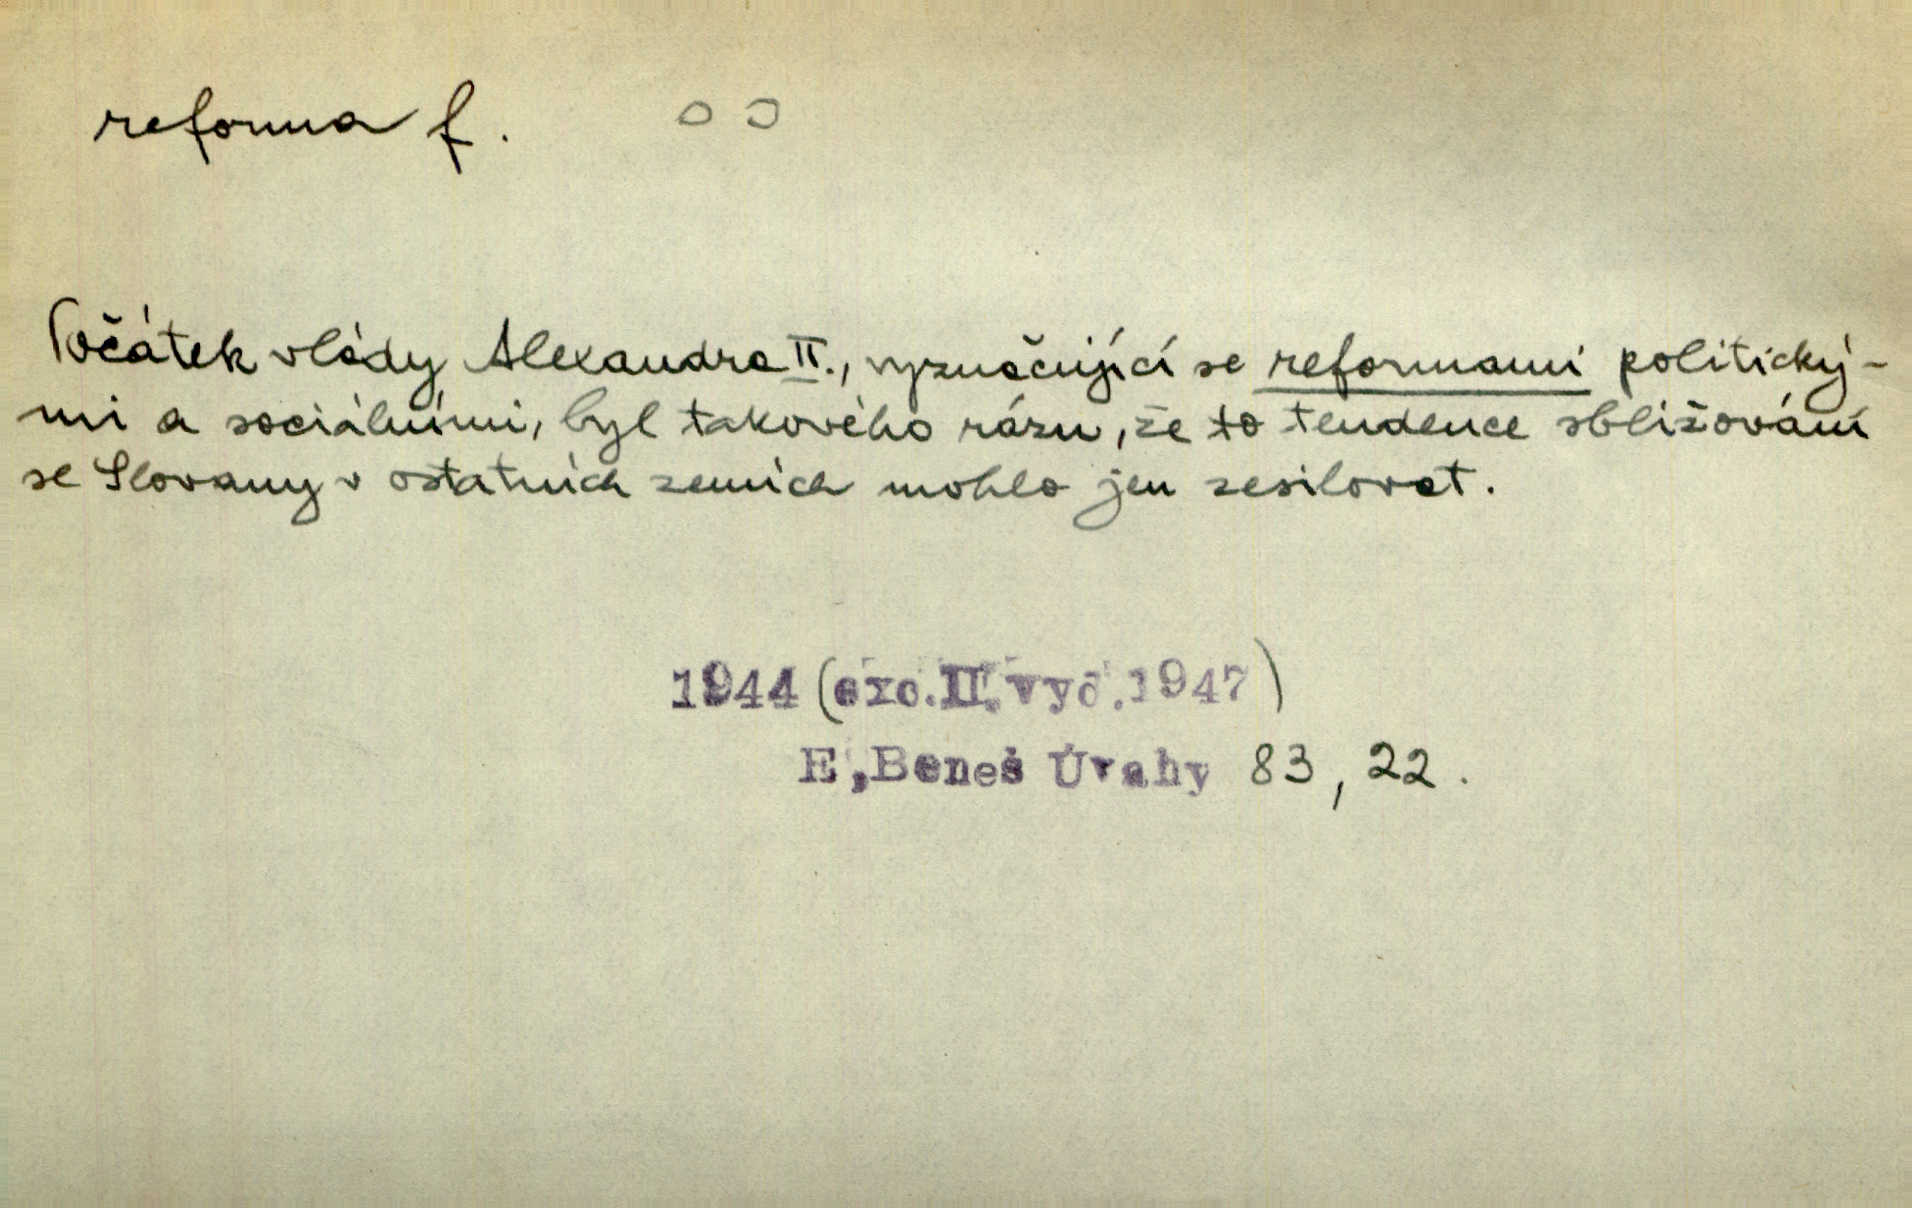 reforma f.
Počátek vlády Alexandra II., vyznačující se reformami politický-
mi a sociálními, byl takového rázu, že to tendence sbližování
se Slovany v ostatních zemích mohlo jen zesilovat.
1944 (exc. II. vyd. 1947)
E. Beneš Úvahy 83, 22.